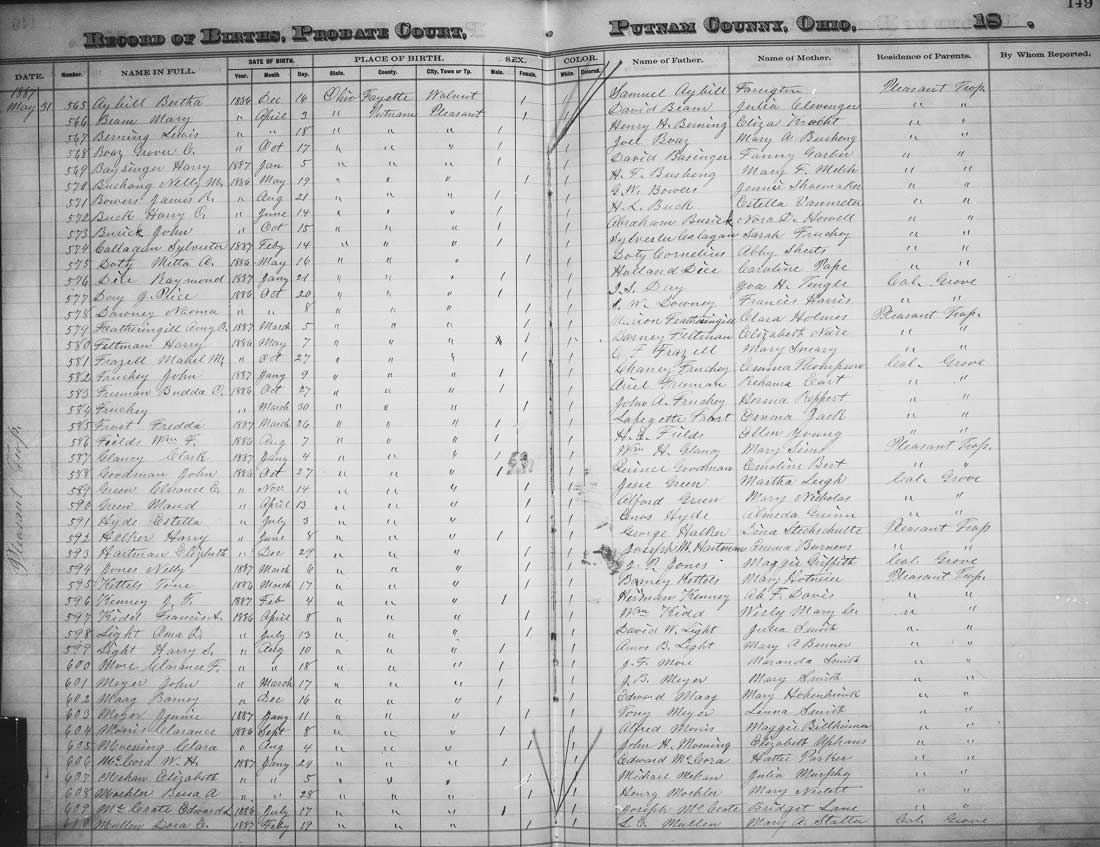 149
RECORD OF BIRTHS, PROBATE COURT, PUTNAM COUNNY, OHIO, 18 .
DATE. Number. NAME IN FULL. DATE OF BIRTH. PLACE OF BIRTH. SEX. COLOR. Name of Father. Name of Mother. Residence of Parents. By Whom Reported.
Year. Month Day. State. County. City, Town or Tp. Male. Female. White. Colored.
1887
May 31 565 Aybill Bertha 1886 Dec 16 Ohio Fayette Walnut 1 1 Samuel Aybill Farington Pleasant Twp.
566 Beam Mary " April 3 " Putnam Pleasant 1 1 David Beam Julia Clevenger " "
567 Berning Lewis " " 18 " " " 1 1 Henry H. Berning Eliza Tracht " "
568 Boaz Grover C. " Oct 17 " " " 1 1 Joel Boaz Mary A Bushong " "
569 Baysinger Harry 1887 Jan 5 " " " 1 1 David Basinger Fanny Garber " "
570 Bushong Nelly M. 1886 May 19 " " " 1 1 H. F. Bushong Mary F. Melch " "
571 Bowers James R. " Aug 21 " " " 1 1 G. W. Bowers Jennie Shoemaker " "
572 Buck Harry O. " June 14 " " " 1 1 H. L. Buck Estella Vanmeter " "
573 Busick John " Oct 15 " " " 1 1 Abraham Busick Nora D. Howell " "
574 Callagan Sylvester 1887 Feby 14 " " " 1 1 Sylvester Calagan Sarah Fruchey " "
575 Doty Metta A. 1886 May 16 " " " 1 1 Doty Cornelius Abby Sheets " "
576 Dice Raymond 1887 Jany 21 " " " 1 1 Holland Dice Caroline Pape " "
577 Day J. 1886 Oct 20 " " " 1 1 Day Tingle Col. Grove
578 Downey Naoma " " 8 " " " 1 1 W. Downey Francis Harris " "
579 Featheringill Amy 1887 March 5 " " " 1 1 Marion Featheringill Clara Holmes Pleasant Twp.
580 Feltman Harry 1886 May 7 " " " 1 1 Barney Feltman Elizabeth " "
581 Frazell Mabel M. " Oct 27 " " " 1 1 Frazell Mary " "
582 Fruchey John 1887 Jany 9 " " " 1 1 Chancy Fruchey Emma Thompson Col. Grove
583 Freeman Budda O. 1886 Oct 27 " " " 1 1 Ariel Freeman Rehama Cart " "
584 Fruchey " March 30 " " " 1 1 John A. Fruchey Herma Ruppert " "
585 Frost Fredda 1887 March 26 " " " 1 1 Lafayette Frost Emma Jack " "
586 Fields Wm F. 1886 Aug 7 " " " 1 1 H. E. Fields Ellen Young " "
587 Clancy Clark 1887 Jany 4 " " " 1 1 Wm H. Glancy Mary Sims Pleasant Twp.
588 Goodman John 1886 Oct 27 " " " 1 1 Goodman Emoline Bert " "
589 Green Clarance E. " Nov 14 " " " 1 1 Jesse Green Martha Leigh Col. Grove
590 Green Maud " April 13 " " " 1 1 Alford Green Mary Nicholas " "
591 Hyde Estella " July 3 " " " 1 1 Enos Hyde Almeda Guinn " "
592 Halker Harry " June 8 " " " 1 1 George Halker Lena Stechschulte Pleasant Twp
593 Hartman Elizbeth " Dec 29 " " " 1 1 Joseph H. Hartman Emma Burnens " "
594 Jones Nelly 1887 March 6 " " " 1 1 J. P. Jones Maggie Griffith Col. Grove
595 Kettels Tone 1886 March 17 " " " 1 1 Barney Kettels Mary Pleasant Twp.
596 Kenney J. F. 1887 Feb 4 " " " 1 1 Herman Kenney F. Davis " "
597 Kidd Francis A. 1886 April 8 " " " 1 1 Wm Kidd Wisly Mary " "
598 Light Oma D. " July 13 " " " 1 1 David W. Light Julia Smith " "
599 Light Harry S. " Aug 10 " " " 1 1 Amos B. Light Mary A Benner " "
600 More Clarance F. " " 18 " " " 1 1 J. F. More Maranda Smith " "
601 Meyer John " March 17 " " " 1 1 J. B. Meyer Mary Smith " "
602 Maag Barney " Dec 16 " " " 1 1 Edward Maag Mary Hohenbrink " "
603 Meyer Jennie 1887 Jany 11 " " " 1 1 Tony Meyer Lenna Smith " "
604 Morris Clarance 1886 Sept 8 " " " 1 1 Alfred Morris Maggie " "
605 Moening Clara " Aug 4 " " " 1 1 John H. Moening Elizabeth Uphaus " "
606 McCord W. H. 1887 Jany 24 " " " 1 1 Edward McCora Hattie Parker " "
607 Mehan Elizabeth " " 5 " " " 1 1 Michael Mehan Julia Murphy " "
608 Mochler Bessa A " " 28 " " " 1 1 Henry Mochler Mary " "
609 McCrate Edward 1886 July 17 " " " 1 1 Joseph McCrate Bridget Lane " "
610 Mullen Dora E. 1887 Feby 19 " " " 1 1 L. E. Mullen Mary A. Statler Col. Grove
Pleasant Twp.